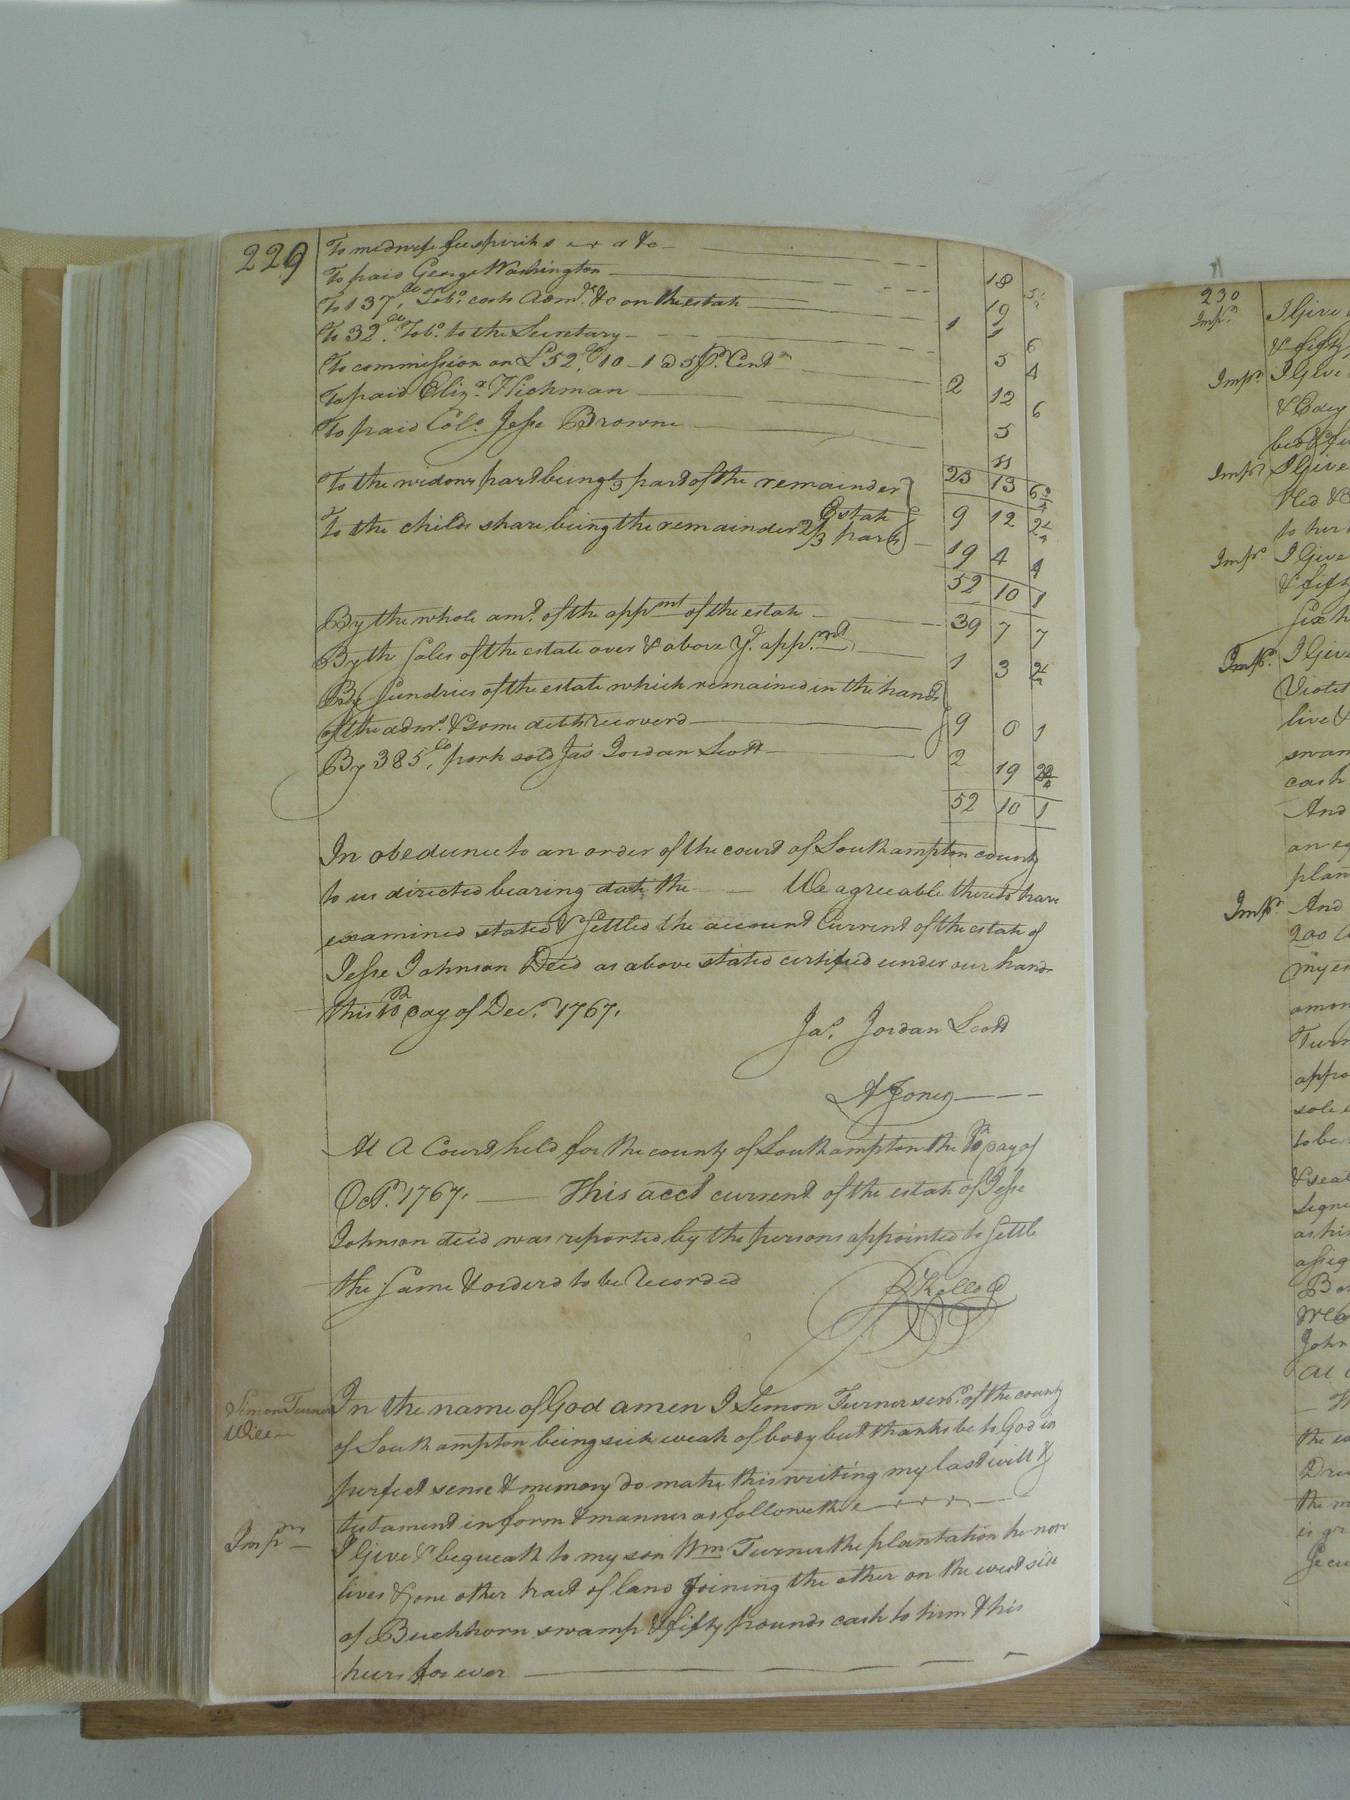 229
To midwife fee spirits &c
To paid George Washington 18 5¼
To 137 lb Tobo. cost Admr. &c on the estate 1 19
To 32 lb Tobo. to the Secretary 5 4
To commission on £52, 10 - 1 @ 5 Pr. Cent 2 12 6
To paid Eliza. Hickman 5
To paid Colo. Jesse Browne 11
23 13 6¾
To the widows part being ⅓ part of the remainder Estate 9 12 2¼
To the childs share being the remainder 2/3 parts 19 4 4
52 10 1
By the whole amt. of the appmt of the estate 39 7 7
By the sales of the estate over & above ye. appmt 1 3 2¼
By sundries of the estate which remained in the hands
of the admr. & some debts recoverd 9 0 1
By 385 lb, pork sold Jas Jordan Scott 2 19 2¾
52 10 1
In obedience to an order of the court of Southampton county
to us directed bearing date the We agreeable thereto have
examined stated & settled the account Current of the estate of
Jesse Johnson Decd as above stated certified under our hands
this 10 day of Decr. 1767.
Jas. Jordan Scott
A Jones
At A Court held for the county of Southampton the day of
Octr. 1767. This acct current of the estate of Jesse
Johnson decd was reported by the persons appointed to settle
the same & orderd to be recorded
R Kello
Simon Turner
Will
In the name of God amen I Simon Turner senr. of the county
of Southampton being sick weak of body but thanks be to God in
perfect sense & memory do make this writing my last will &
testament in form & manner as followeth
Impr I Give & bequeath to my son Wm Turner the plantation he now
lives & one other tract of land Joining the other on the west side
of Buckhorn swamp & fifty pounds cash to him & his
heirs for ever
230
Impr. I Give
& fifty
Impr. I Give
&
bed & fu
Impr I Give
to her
Impr. I Give
& fifty
six h
Impr. I Give
Violet
live &
swam
cash
And
an eq
plan
Impr. And
200
my es
amon
Turn
appo
sole
to be
& seal
Signe
as his
assig
John
At
the
Dre
the
is gr
Secu